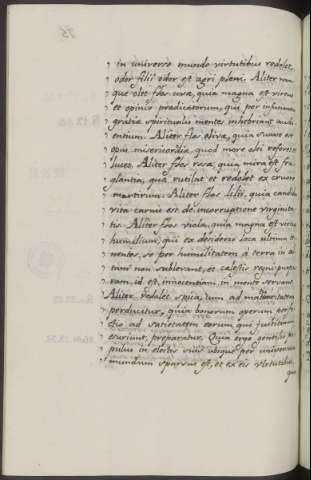 in universo mundo virtutibus redolet,
odor filii odor est agri pleni. Aliter nam
que olet flos uvæ, quia magna est virtus
et opinio prædicatorum, qui per infusionem
gratiæ spiritualis mentes inebriant audi
entium. Aliter flos olivæ, quia suavis est
opus misericordiæ, quod more olei refovet
lucet. Aliter flos rosæ, quia mira est fra
glantia, quæ rutilat et redolet ex cruore
martirum. Aliter flos lilii, quia candida
vita carnis est de incorruptione virginita
tis. Aliter flos violæ, quia magna est virtus
humilium, qui ex desiderio loca ultima te
nentes, se per humilitatem à terra in al
tum non sublevant, et cælestis regni purpu
ram, in mente servant.
Aliter redolet spica, dum ad maturitatem
perducitur, quia bonorum operum perfe
ctio, ad satietatem eorum qui justitiam
esuriunt, præparatur. Quia ergo gentilis po
pulus in electis suis ubique per universum
mundum sparsus est, et ex eis virtutibus